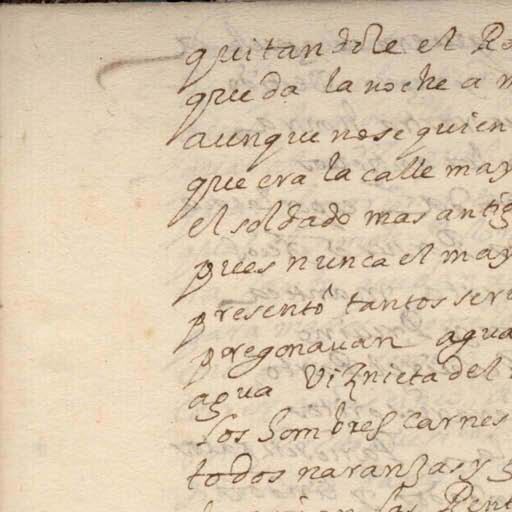 quitandole el Ro
queda la noche a m
aunque nose quien
que era la calle may
el soldado mas antig
pues nunca el may
presentò tantos serv
pregonauan agua
agua Viznieta del
los hombres carnes
todos naranzas y
las Pent